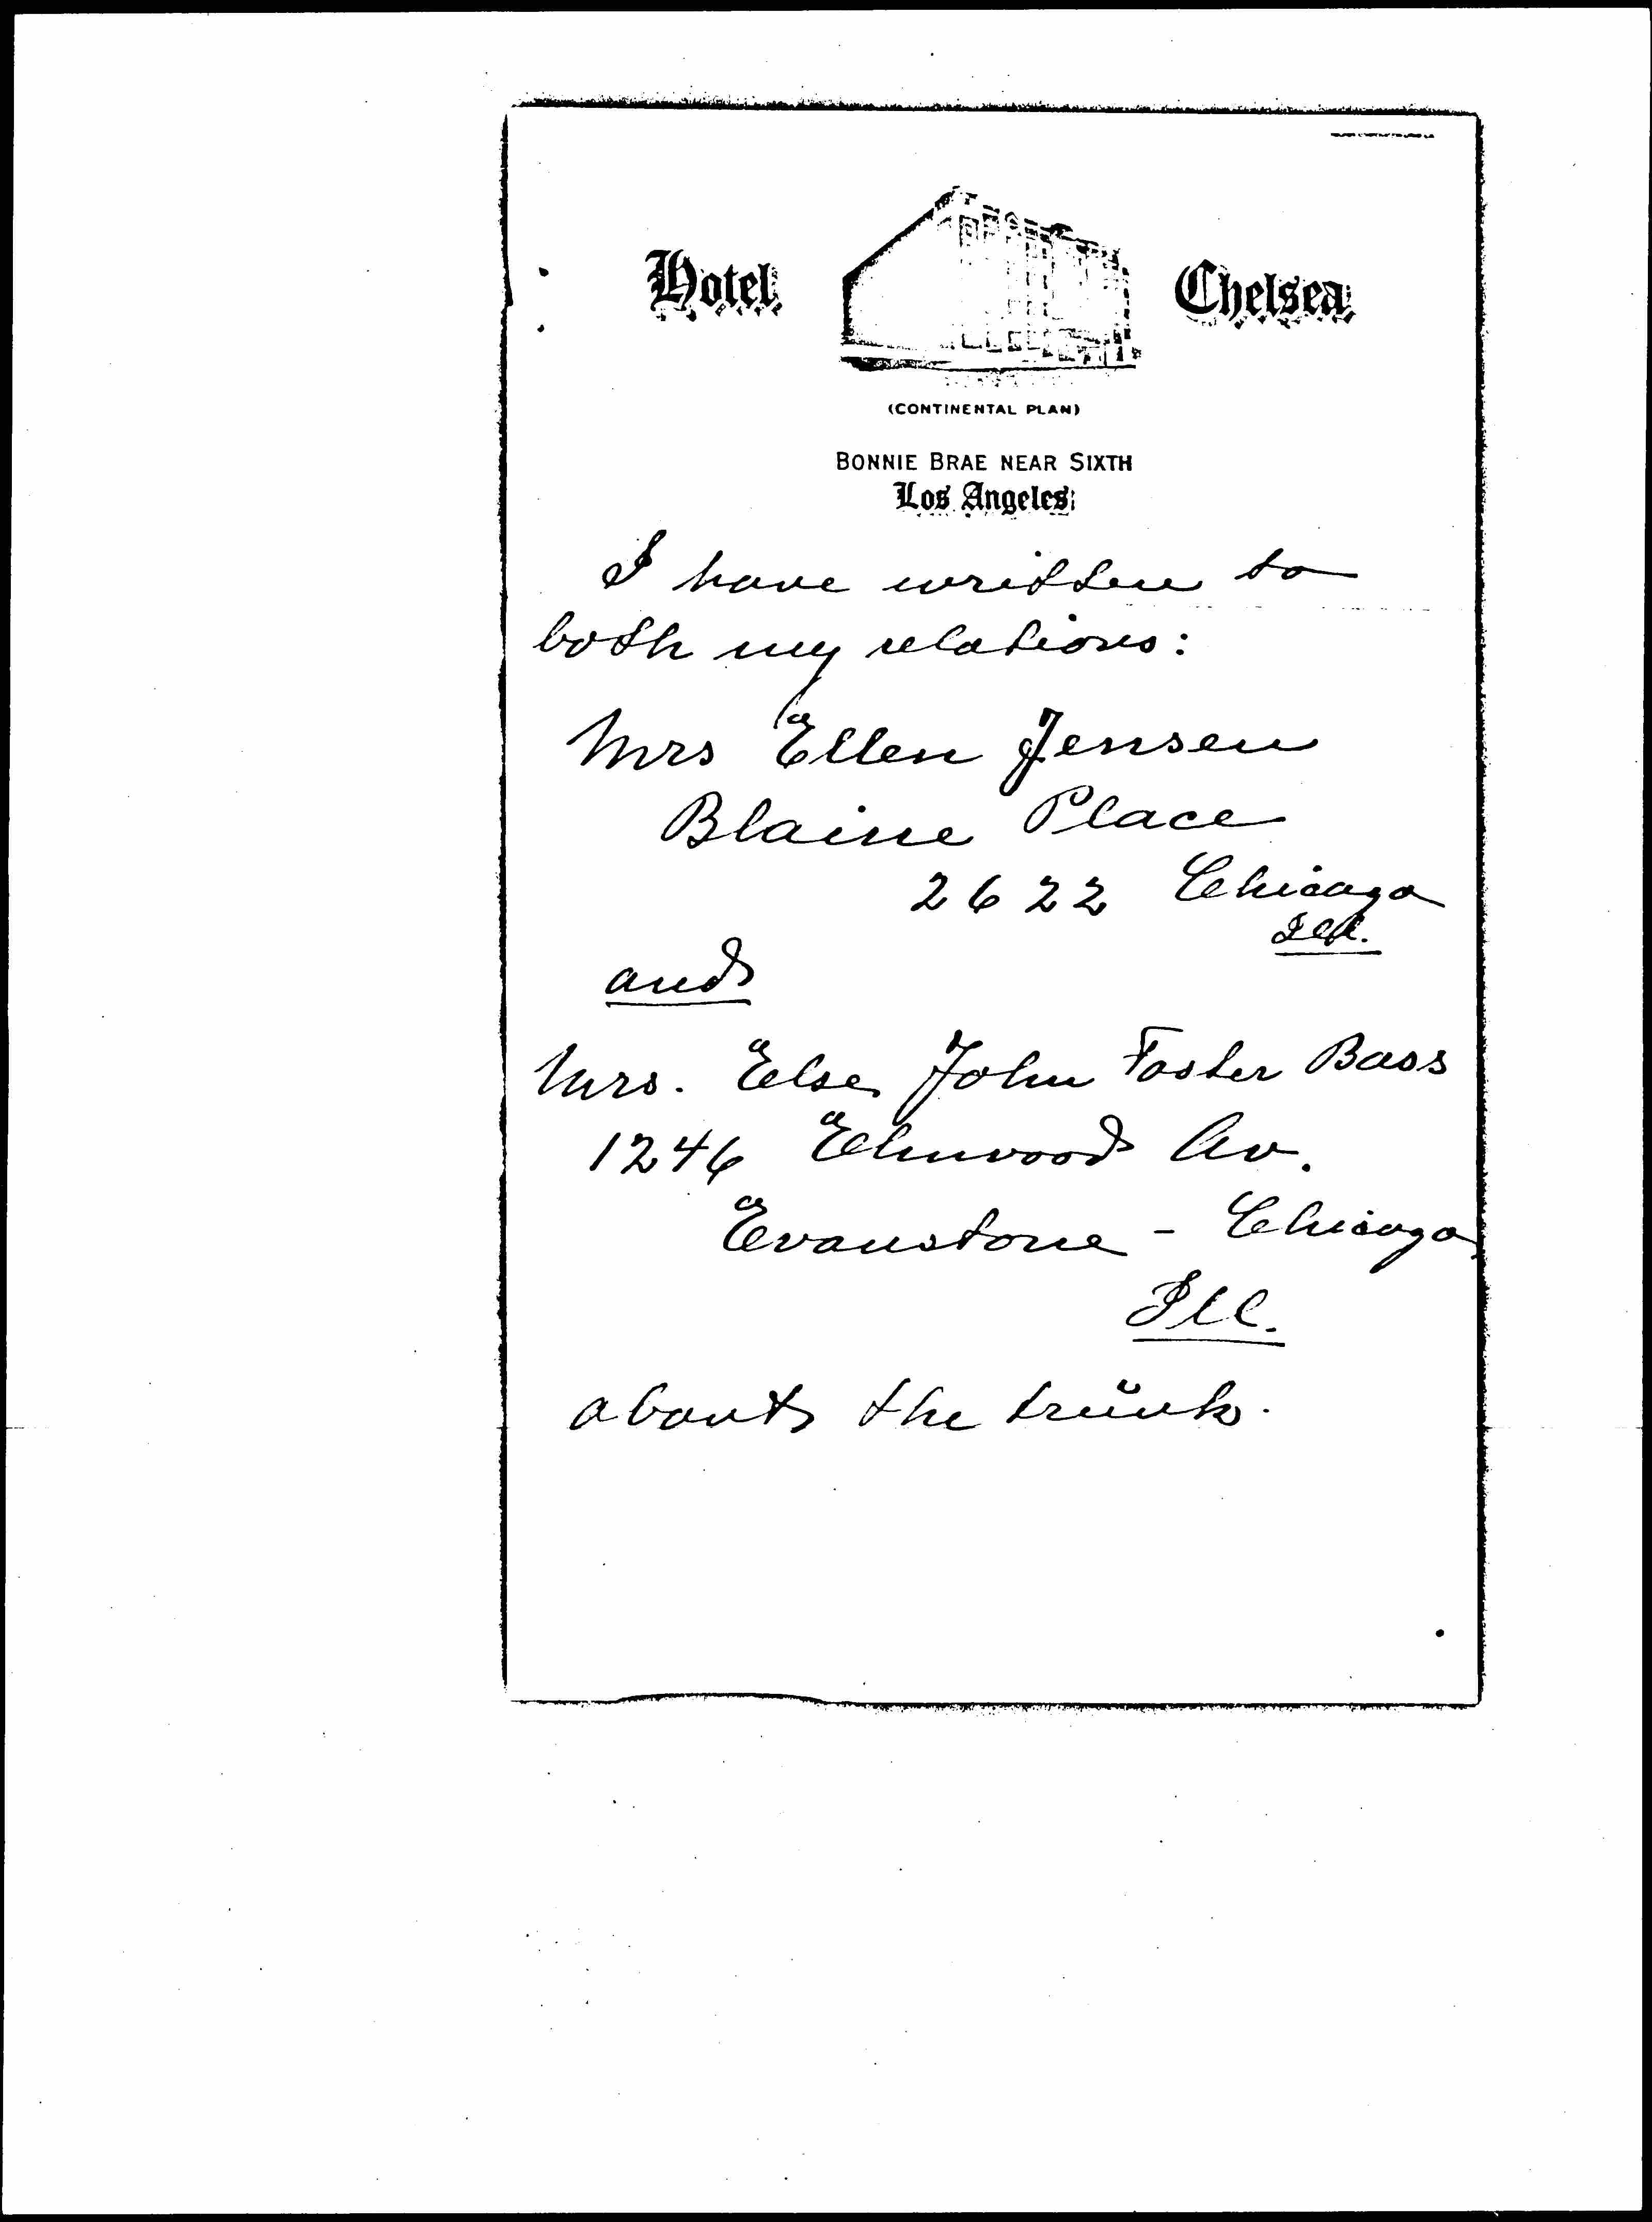 Hotel Chelsea
(CONTINENTAL PLAN)
BONNIE BRAE NEAR SIXTH
Los Angeles
I have written to
both my relations:
Mrs Ellen Jensen
Blaine Place
2622 Chicago
Ill.
and
Mrs. Else John Foster Bass
1246 Elmwood Av.
Evanstone - Chicago
Ill.
about the trŭnk.